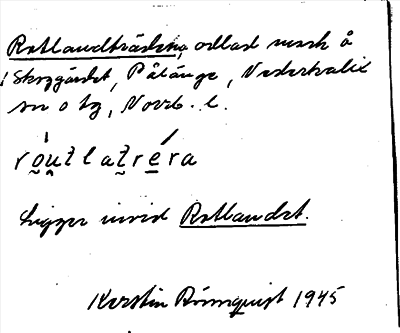 Rotlandträdena, odlad mark å
Skoggärdet, Pålänge, Nederkalix
sn o tg, Norrb. l.
rou̯tlatrera
Ligger invid Rotlandet.
Kerstin Rönnquist 1945